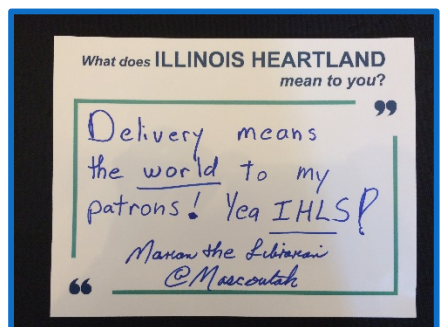 What does ILLINOIS HEARTLAND
mean to you?
”
Delivery means
the world to my
patrons! Yea IHLS!
Marian the Librarian
@Mascoutah
“